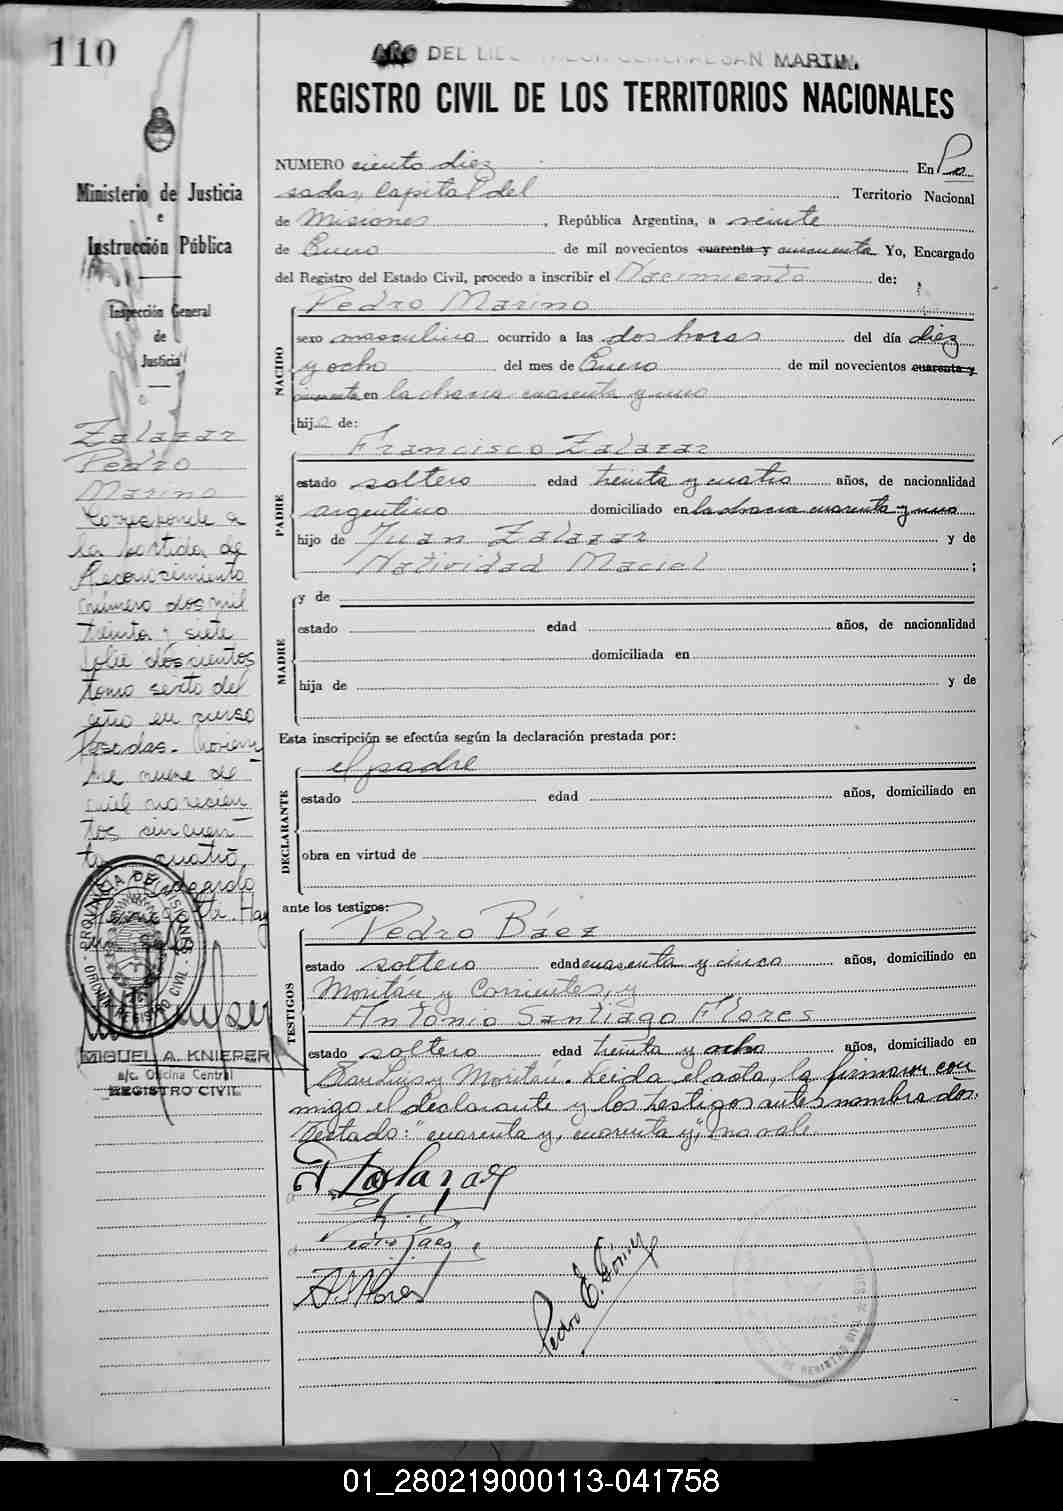 110
AÑO DEL LIBERTADOR GENERAL SAN MARTIN.
REGISTRO CIVIL DE LOS TERRITORIOS NACIONALES
Ministerio de Justicia
e
Instrucción Pública
Inspección General
de
Justicia
Zalazar
Pedro
Marino
Corresponde a
la partida de
Reconocimiento
número dos mil
treinta y siete
folio doscientos
tomo sexto del
año en curso
Posadas - Noviem
bre nueve de
mil novecien
tos cincuen
ta cuatro
PROVINCIA DE MISIONES
REGISTRO CIVIL
MIGUEL A. KNIEPER
a/c. Oficina Central
REGISTRO CIVIL
NUMERO ciento diez En Po
sadas, Capital del Territorio Nacional
de Misiones, República Argentina, a veinte
de Enero de mil novecientos cuarenta y cincuenta Yo, Encargado
del Registro del Estado Civil, procedo a inscribir el Nacimiento de:
NACIDO
Pedro Marino
sexo masculino ocurrido a las dos horas del día diez
y ocho del mes de Enero de mil novecientos cuarenta y
cincuenta en la chacra cuarenta y uno
hijo de:
PADRE
Francisco Zalazar
estado soltero edad treinta y cuatro años, de nacionalidad
argentino domiciliado en la chacra cuarenta y uno
hijo de Juan Zalazar y de
Natividad Maciel ;
MADRE
y de
estado edad años, de nacionalidad
domiciliada en
hija de y de
Esta inscripción se efectúa según la declaración prestada por:
DECLARANTE
el padre
estado edad años, domiciliado en
obra en virtud de
ante los testigos:
TESTIGOS
Pedro Báez
estado soltero edad cuarenta y cinco años, domiciliado en
Moritán y Corrientes, y
Antonio Santiago Flores
estado soltero edad treinta y ocho años, domiciliado en
San Luis y Moritán. Leida el acta, la firmaron con
migo el declarante y los testigos antes nombrados.
Testado: "cuarenta y, cuarenta y", no vale
F Zalazar
Pedro Báez
A. S. Flores
Pedro E. Gómez
01_280219000113-041758